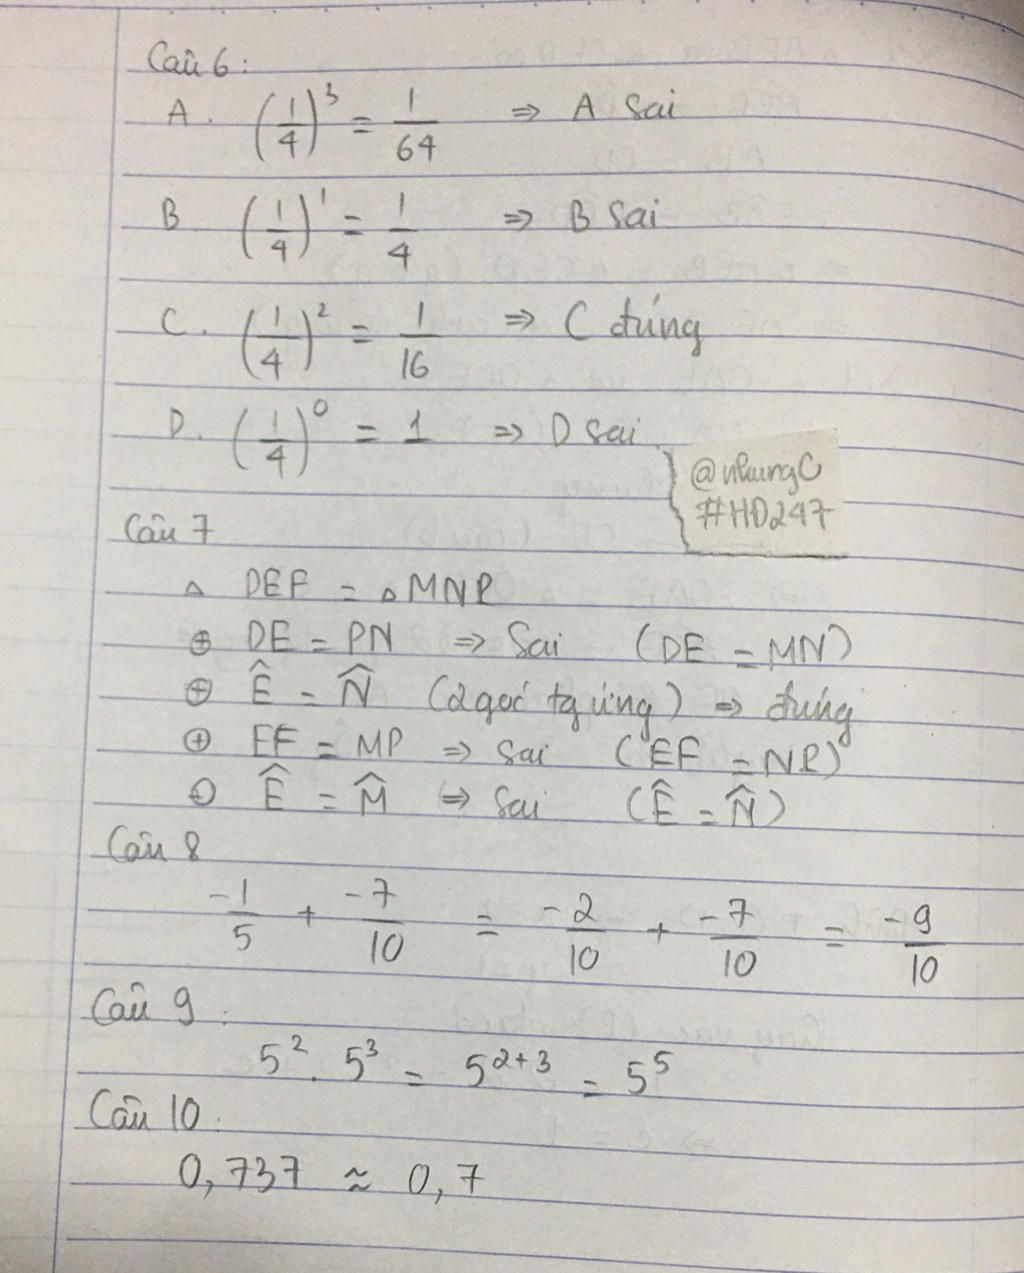 Câu 6:
A. (1/4)^3 = 1/64 ⇒ A sai
B. (1/4)^1 = 1/4 ⇒ B sai
C. (1/4)^2 = 1/16 ⇒ C đúng
D. (1/4)^0 = 1 ⇒ D sai.
@nhungC
#HD247
Câu 7
△ DEF = △ MNP
⊕ DE = PN ⇒ Sai (DE = MN)
⊕ Ê = N̂ (2 góc tg ứng) ⇒ đúng
⊕ EF = MP ⇒ sai (EF = NP)
⊕ Ê = M̂ ⇒ sai (Ê = N̂)
Câu 8
-1/5 + -7/10 = -2/10 + -7/10 = -9/10
Câu 9:
5^2 . 5^3 = 5^(2+3) = 5^5
Câu 10:
0,737 ≈ 0,7